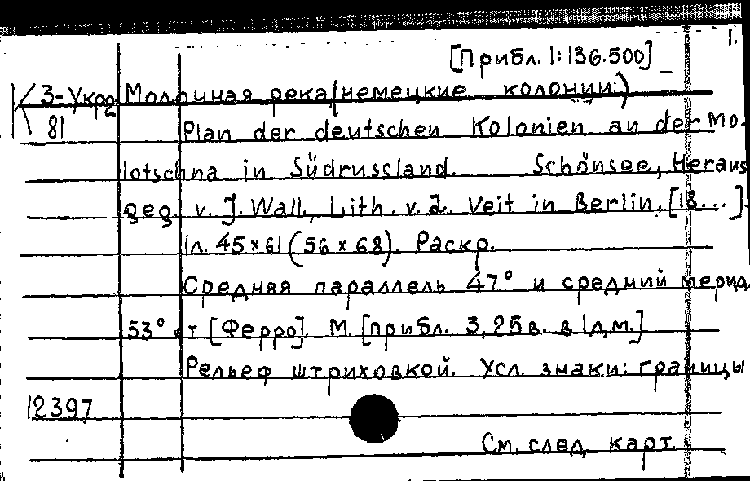 1.
[Прибл. 1:136.500]
3-Укр Молочная река (немецкие колонии)
2
81 Plan der deutschen Kolonien an der Mo-
lotschna in Südrussland. Schönsee, Heraus
geg. v. J. Wall, Lith. v. J. Veit in Berlin, [18...].
1л. 45×61 (56×68). Раскр.
Средняя параллель 47° и средний мерид.
53° от [Ферро]. М. [прибл. 3,25в. в 1д.м.]
Рельеф штриховкой. Усл. знаки: границы
12397
См. след. карт.